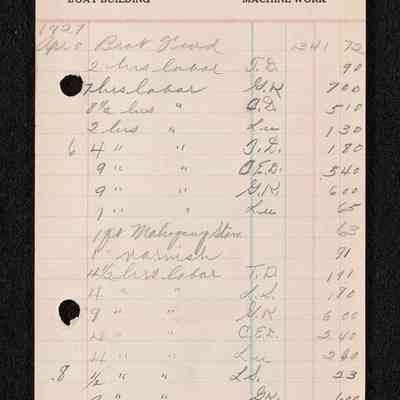 BOAT BUILDING MACHINE WORK
1927
Apr. Brot Fwd 1341 72
2 hrs labor T.D. 90
7 hrs labor G.K. 7 00
8½ hrs " C.D. 5 10
2 hrs " Lee 1 30
6 4 " " T.D. 1 80
9 " " C.E.D. 5 40
9 " " G.K. 6 00
1 " " Lee 65
1 pt Mahogany Stain 63
1 " varnish 91
4½ hrs labor T.D. 1 91
4 " " L.S. 1 80
9 " " G.K. 6 00
4 " " C.E.D. 2 40
4 " " Lee 2 60
8 ½ " " L.S. 23
9 " " G.K. 6 00